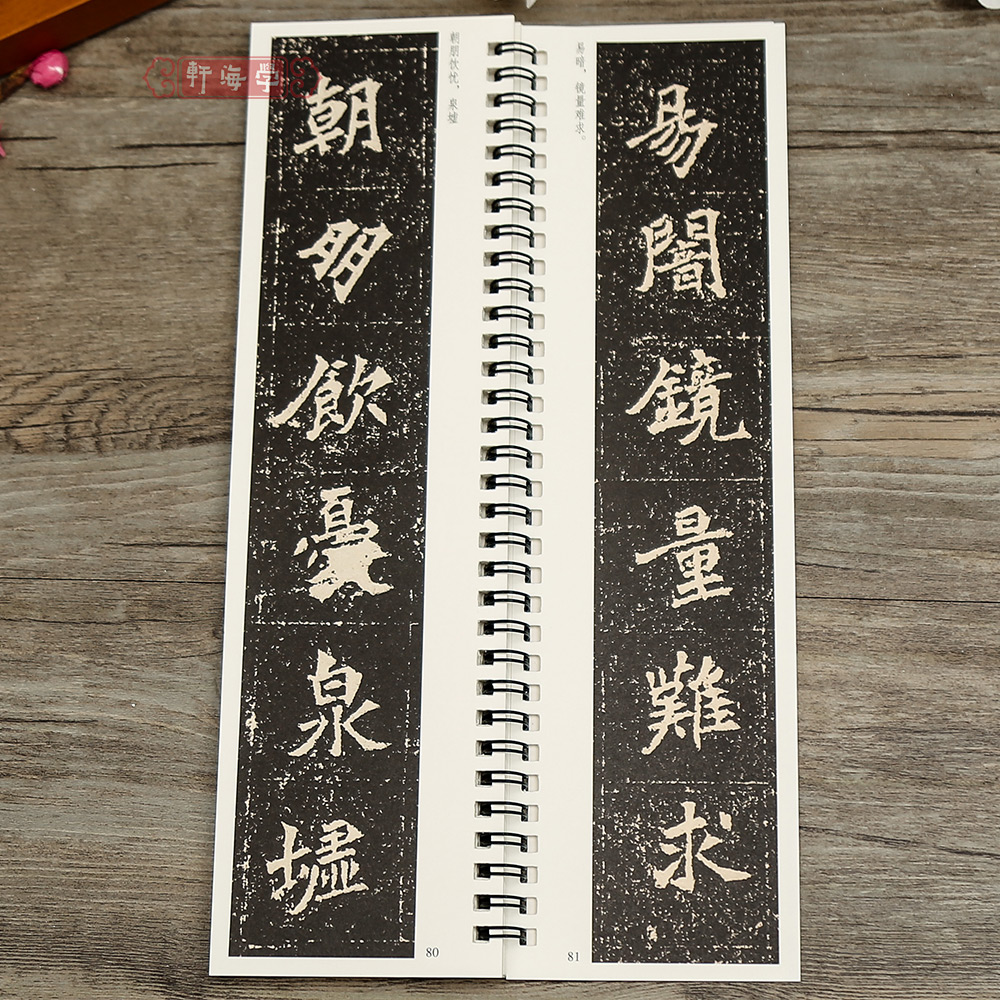 軒海学
朝朋飲憂泉墟
朝朋饮忧，泉墟
80
易暗，镜量难求。
易闇鏡量難求
81